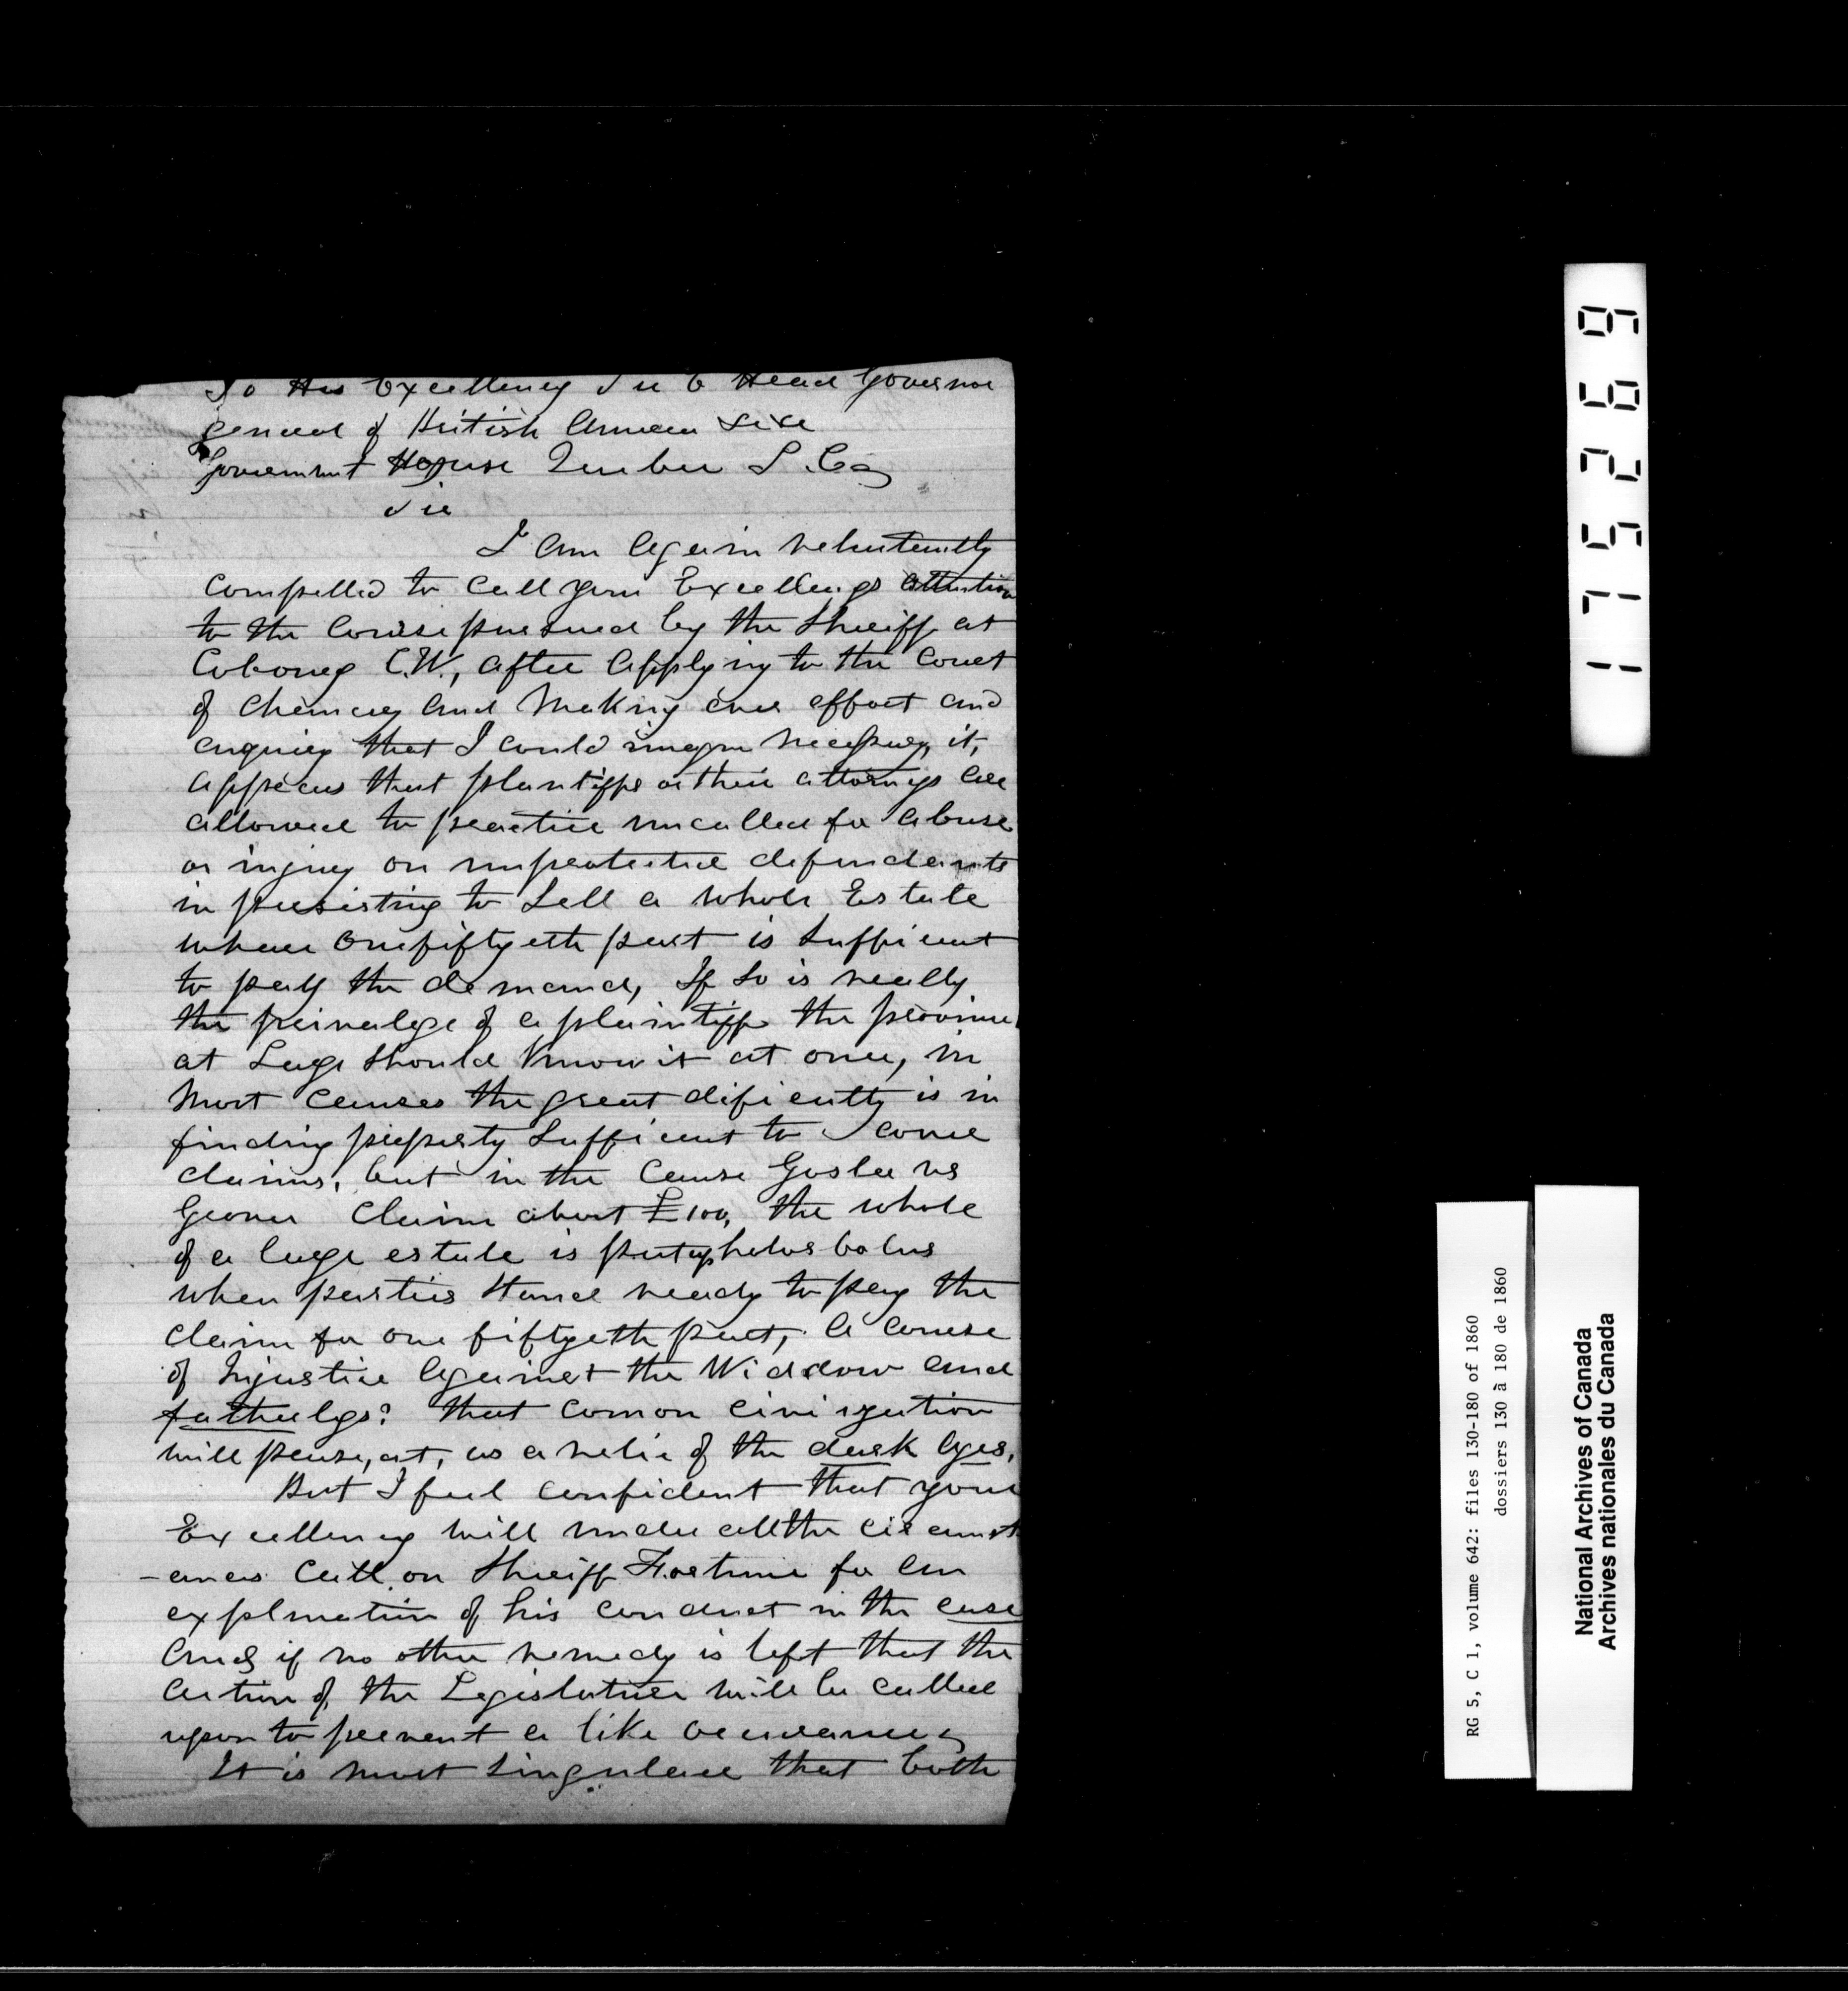 To His Excellency Sir E Head Governor
General of British America &c &c
Government House Quebec L. Ca
Sir
I am again reluctantly
compelled to call your Excellencys attention
to the Course pursued by the Sheriff at
Cobourg C.W., after applying to the Court
of Chancery and Making ever effort and
enquiry that I could imagin necessary, it,
appears that plantiffs or their attornys are
allowed to practice uncalled for abuse
or injury on unprotected defendants
in persisting to Sell a whole Estate
whare one fiftyeth part is Sufficent
to pay the demand, If So is really
the privalege of a plaintiff the province
at Large Should Know it at once, in
Most Causes the great dificulty is in
finding property Sufficent to cover
claims, but in the Cause vs
Claim about £100, the whole
of a large estate is put up holus bolus
when parties stand ready to pay the
claim for one fiftyeth part, A course
of Injustice against the Widdow and
fatherlys? that comon civilization
will pause, at, as a relic of the dark ages,
But I feel confident that your
Excellency will under all the circumst
-ances Call on Sheriff Fortune for an
explanation of his conduct in the case
And if no other remedy is left that the
Action of the Legislature will be called
upon to prevent a like occurance
It is most Singular that both
175269
RG 5, C 1, volume 642: files 130-180 of 1860
dossiers 130 à 180 de 1860
National Archives of Canada
Archives nationales du Canada